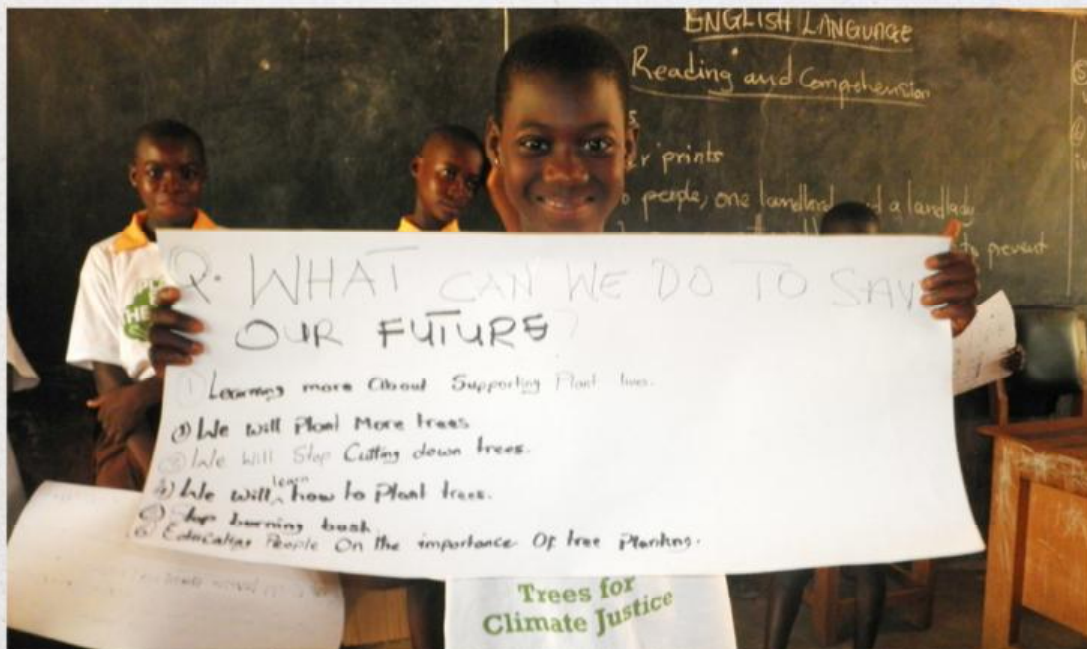 ENGLISH LANGUAGE
Reading and Comprehension
prints
people, one landlord a landlady
to prevent
Q. WHAT CAN WE DO TO SAV
OUR FUTURE?
① Learning more About Supporting Plant lives.
② We will Plant More trees
③ We Will Stop Cutting down trees.
④ We will learn how to Plant trees.
⑤ Stop burning bush
⑥ Educating People On the importance Of tree Planting.
HE
Trees for
Climate Justice